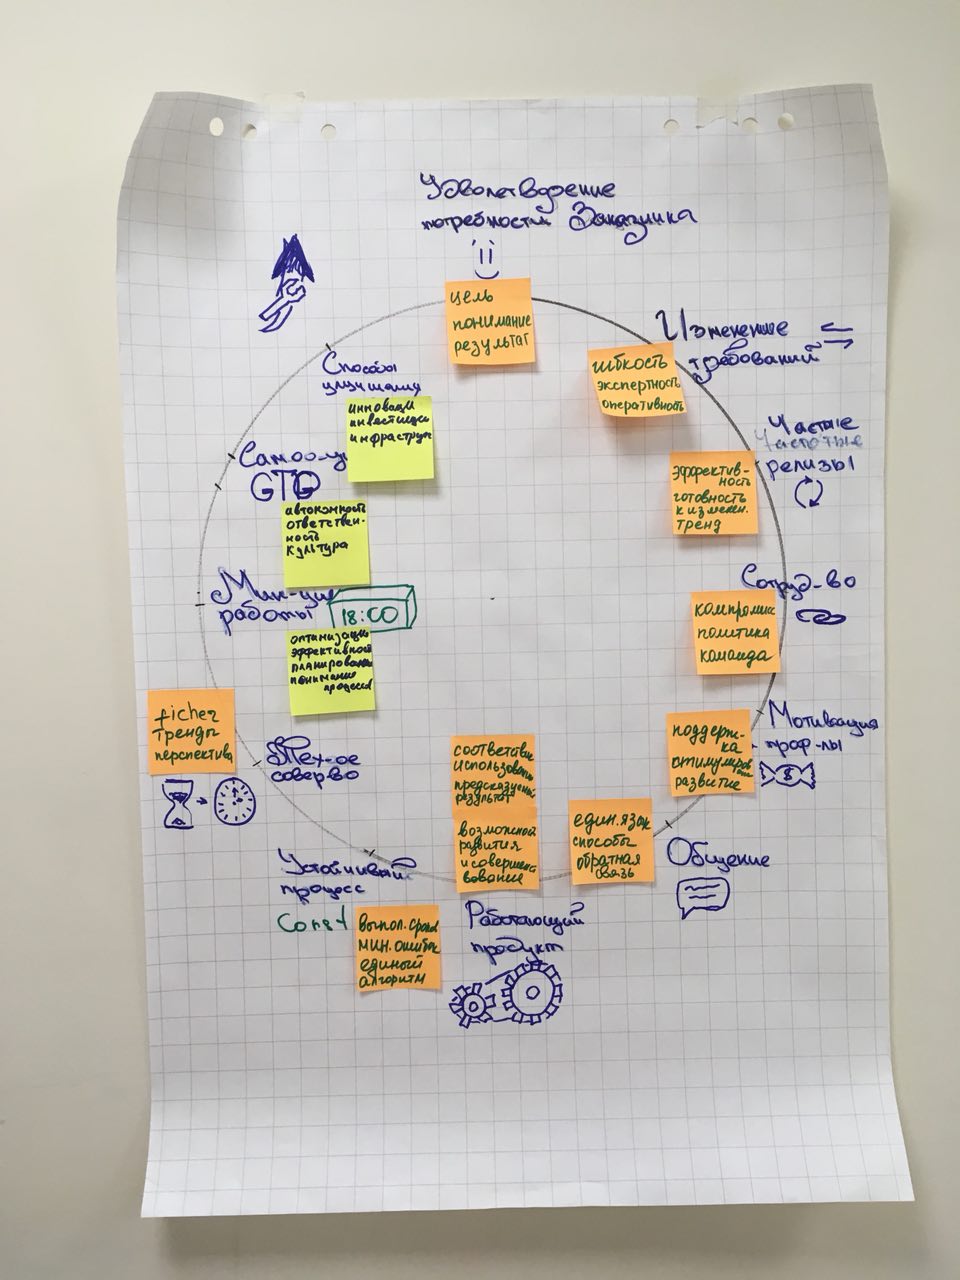 Удволетворение
потребностей Заказчика
цель
понимание
результат
Изменение
требований
гибкость
экспертность
оперативность
Частые
Частотые
релизы
эффектив-
ность
готовность
к измемен.
тренд
Сотруд-во
компромисс
политика
команда
Мотивация
проф-лы
$
поддерж-
ка
стимулиров
развитие
Общение
един. язык
способы
обратная
связь
соответствие
использован
предсказуемый
результат
возможност
развития
и соверше
вование
Работающий
продукт
Устойчивый
процесс
Const
выпол. сроков
мин. ошибок
единый
алгоритм
Тех-ое
соверво
ficher
тренды
перспектива
Мин-ция
работы
18:00
оптимизации
эффективност
планирован
понимание
процессов
Самоо-ция
GTD
автономность
ответствен-
ность
культура
Способы
улучшения
инноваци
инвестиции
инфраструк